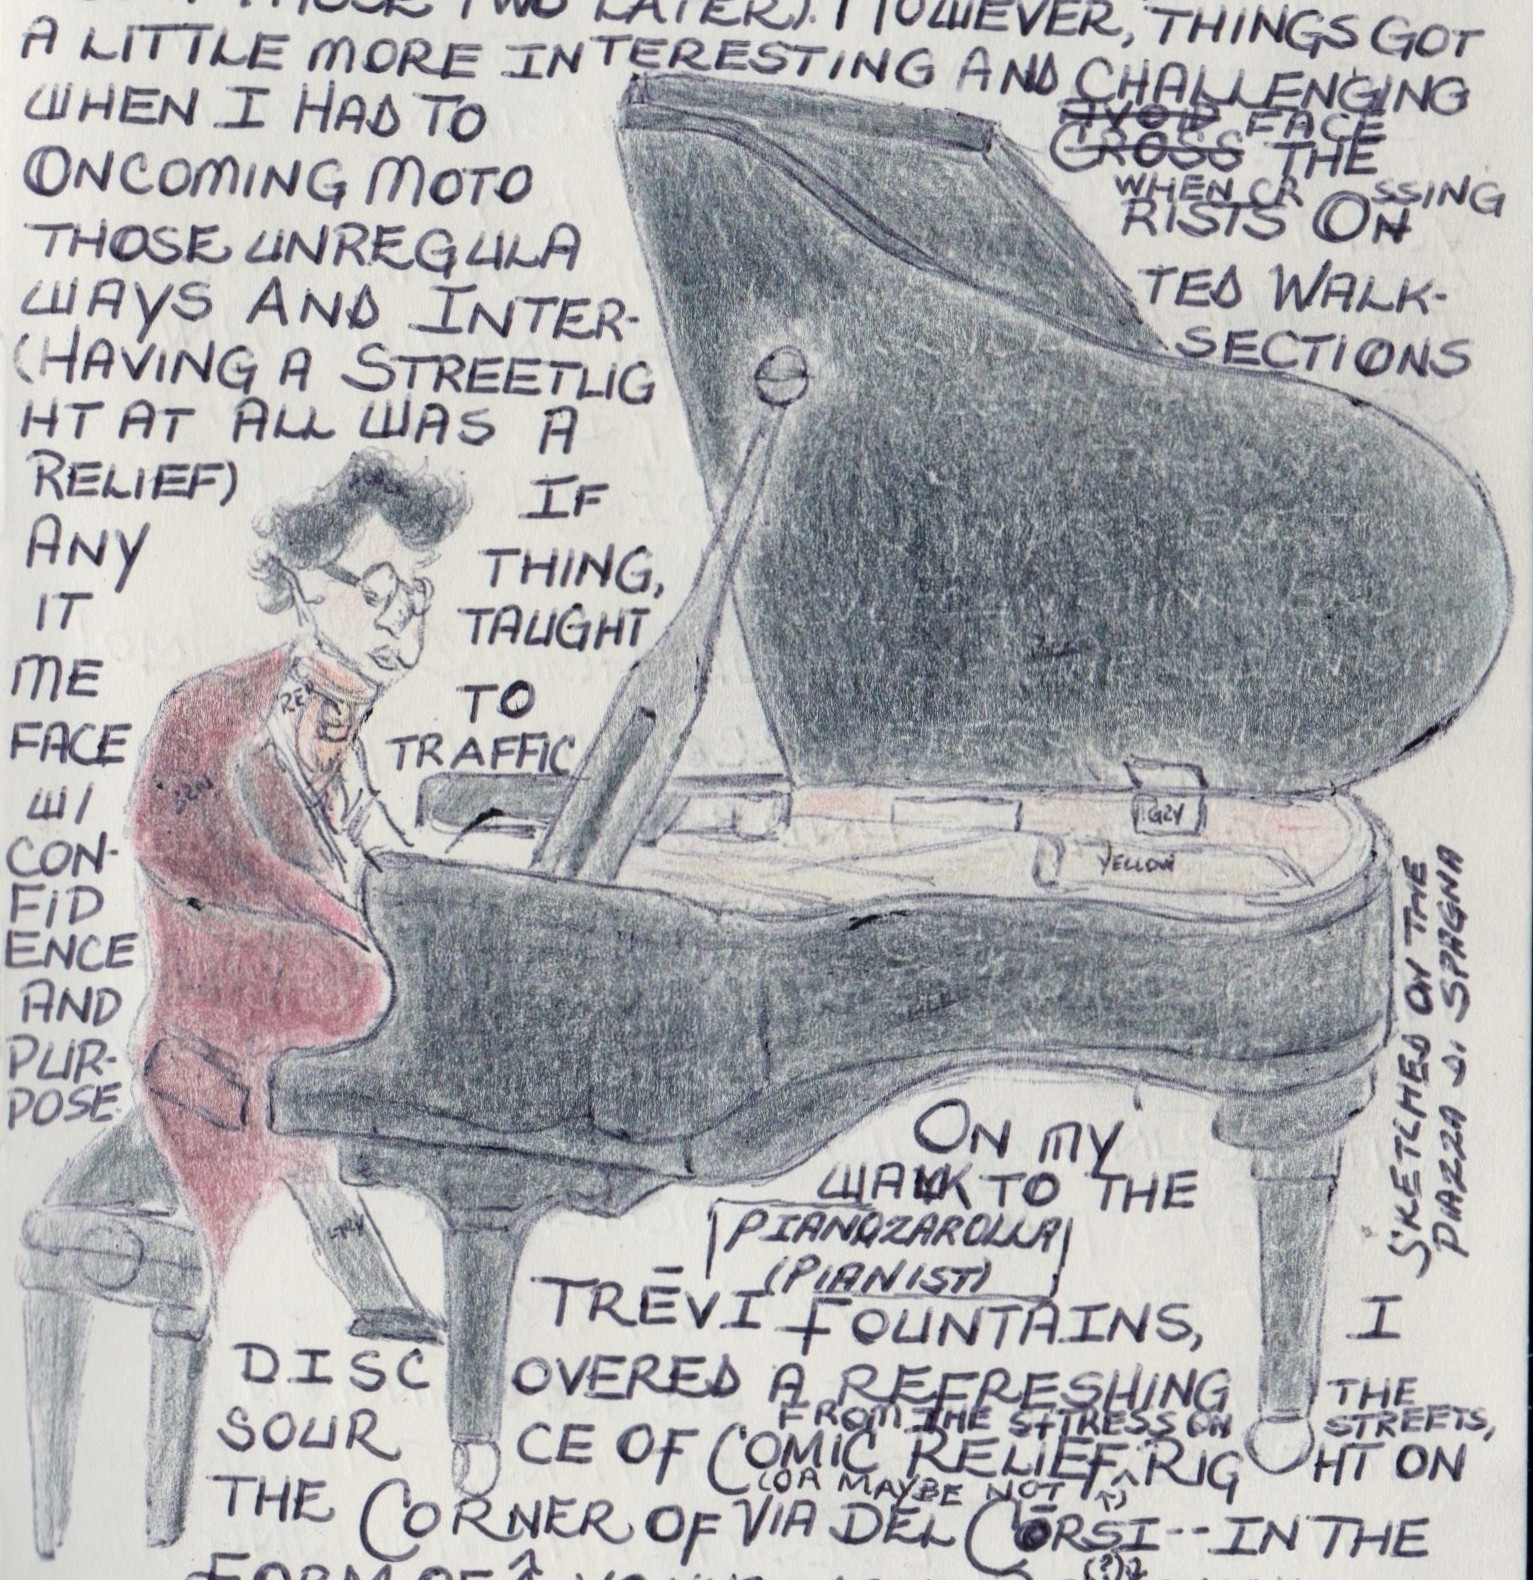 THOSE TWO LATER). HOWEVER, THINGS GOT
A LITTLE MORE INTERESTING AND CHALLENGING
WHEN I HAD TO AVOID FACE
CROSS THE
ONCOMING MOTO
WHEN CR SSING
RISTS ON
THOSE UNREGULA TED WALK-
WAYS AND INTER- SECTIONS
(HAVING A STREETLIG
HT AT ALL WAS A
RELIEF) IF
ANY THING,
IT TAUGHT
ME TO
FACE TRAFFIC
W/
CON-
FID
ENCE
AND
PUR-
POSE.
RED
GRY
YELLOW
GRY
SKETCHED ON THE
PIAZZA DI SPAGNA
ON MY
WALK TO THE
PIANOZAROLLA
(PIANIST)
TRĒVI FOUNTAINS, I
DISC OVERED A REFRESHING
FROM THE STTRESS ON THE STREETS,
SOUR CE OF COMIC RELIEF RIG HT ON
(OR MAYBE NOT)
THE CORNER OF VIA DEL CORSI -- IN THE
(?)
FORM OF